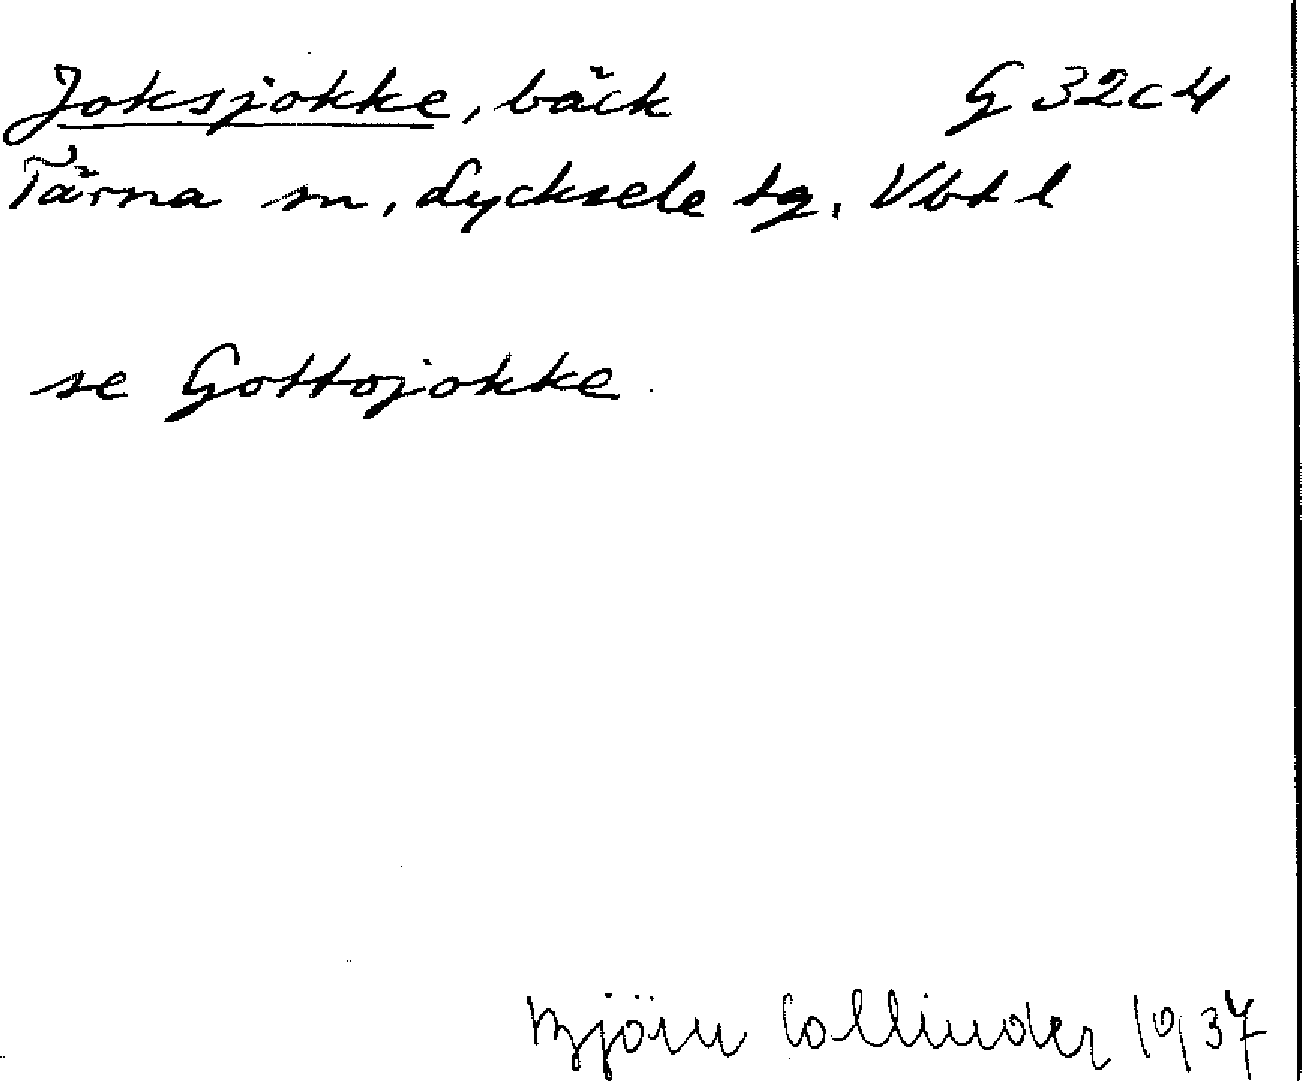 Joksjokke, bäck G 32c4
Tärna sn, Lycksele tg, Vbtl
se Gottojokke.
Björn Collinder 1937